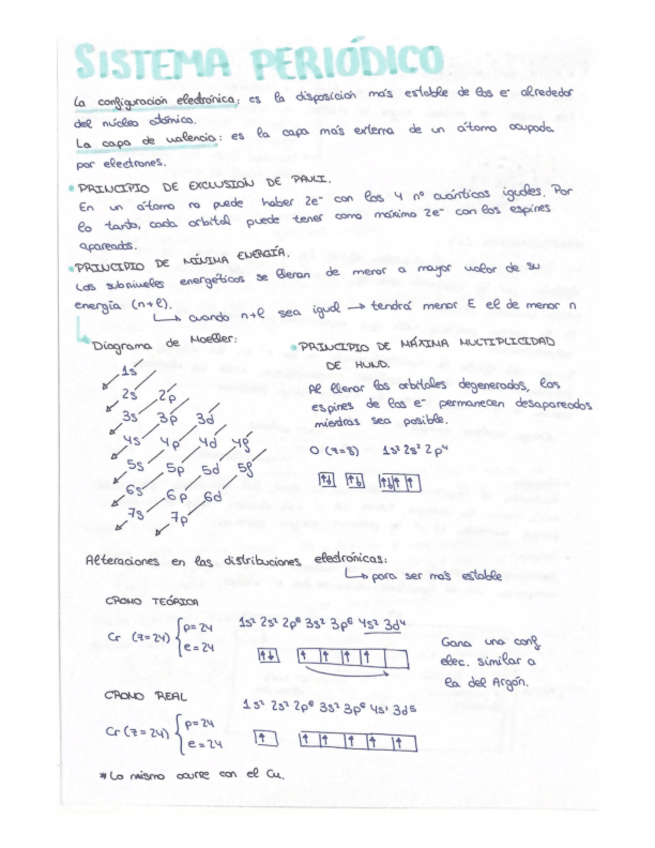 SISTEMA PERIÓDICO
La configuración electrónica: es la disposición más estable de los e⁻ alrededor
del núcleo atómico.
La capa de valencia: es la capa más externa de un átomo ocupada
por electrones.
• PRINCIPIO DE EXCLUSIÓN DE PAULI.
En un átomo no puede haber 2e⁻ con los 4 nº cuánticos iguales. Por
lo tanto, cada orbital puede tener como máximo 2e⁻ con los espines
apareados.
• PRINCIPIO DE MÍNIMA ENERGÍA.
Los subniveles energéticos se llenan de menor a mayor valor de su
energía (n+l).
↳ cuando n+l sea igual → tendrá menor E el de menor n
↳ Diagrama de Moeller:
1s
2s 2p
3s 3p 3d
4s 4p 4d 4f
5s 5p 5d 5f
6s 6p 6d
7s 7p
• PRINCIPIO DE MÁXIMA MULTIPLICIDAD
DE HUND.
Al llenar los orbitales degenerados, los
espines de los e⁻ permanecen desapareados
mientras sea posible.
O (z=8) 1s² 2s² 2p⁴
↑↓ ↑↓ ↑↓ ↑ ↑
Alteraciones en las distribuciones electrónicas:
↳ para ser más estable
CROMO TEÓRICA
Cr (z=24) { p=24
e=24
1s² 2s² 2p⁶ 3s² 3p⁶ 4s² 3d⁴
↑↓ ↑ ↑ ↑ ↑
Gana una conf.
elec. similar a
la del Argón.
CROMO REAL
Cr (z=24) { p=24
e=24
1s² 2s² 2p⁶ 3s² 3p⁶ 4s¹ 3d⁵
↑ ↑ ↑ ↑ ↑ ↑
* Lo mismo ocurre con el Cu.